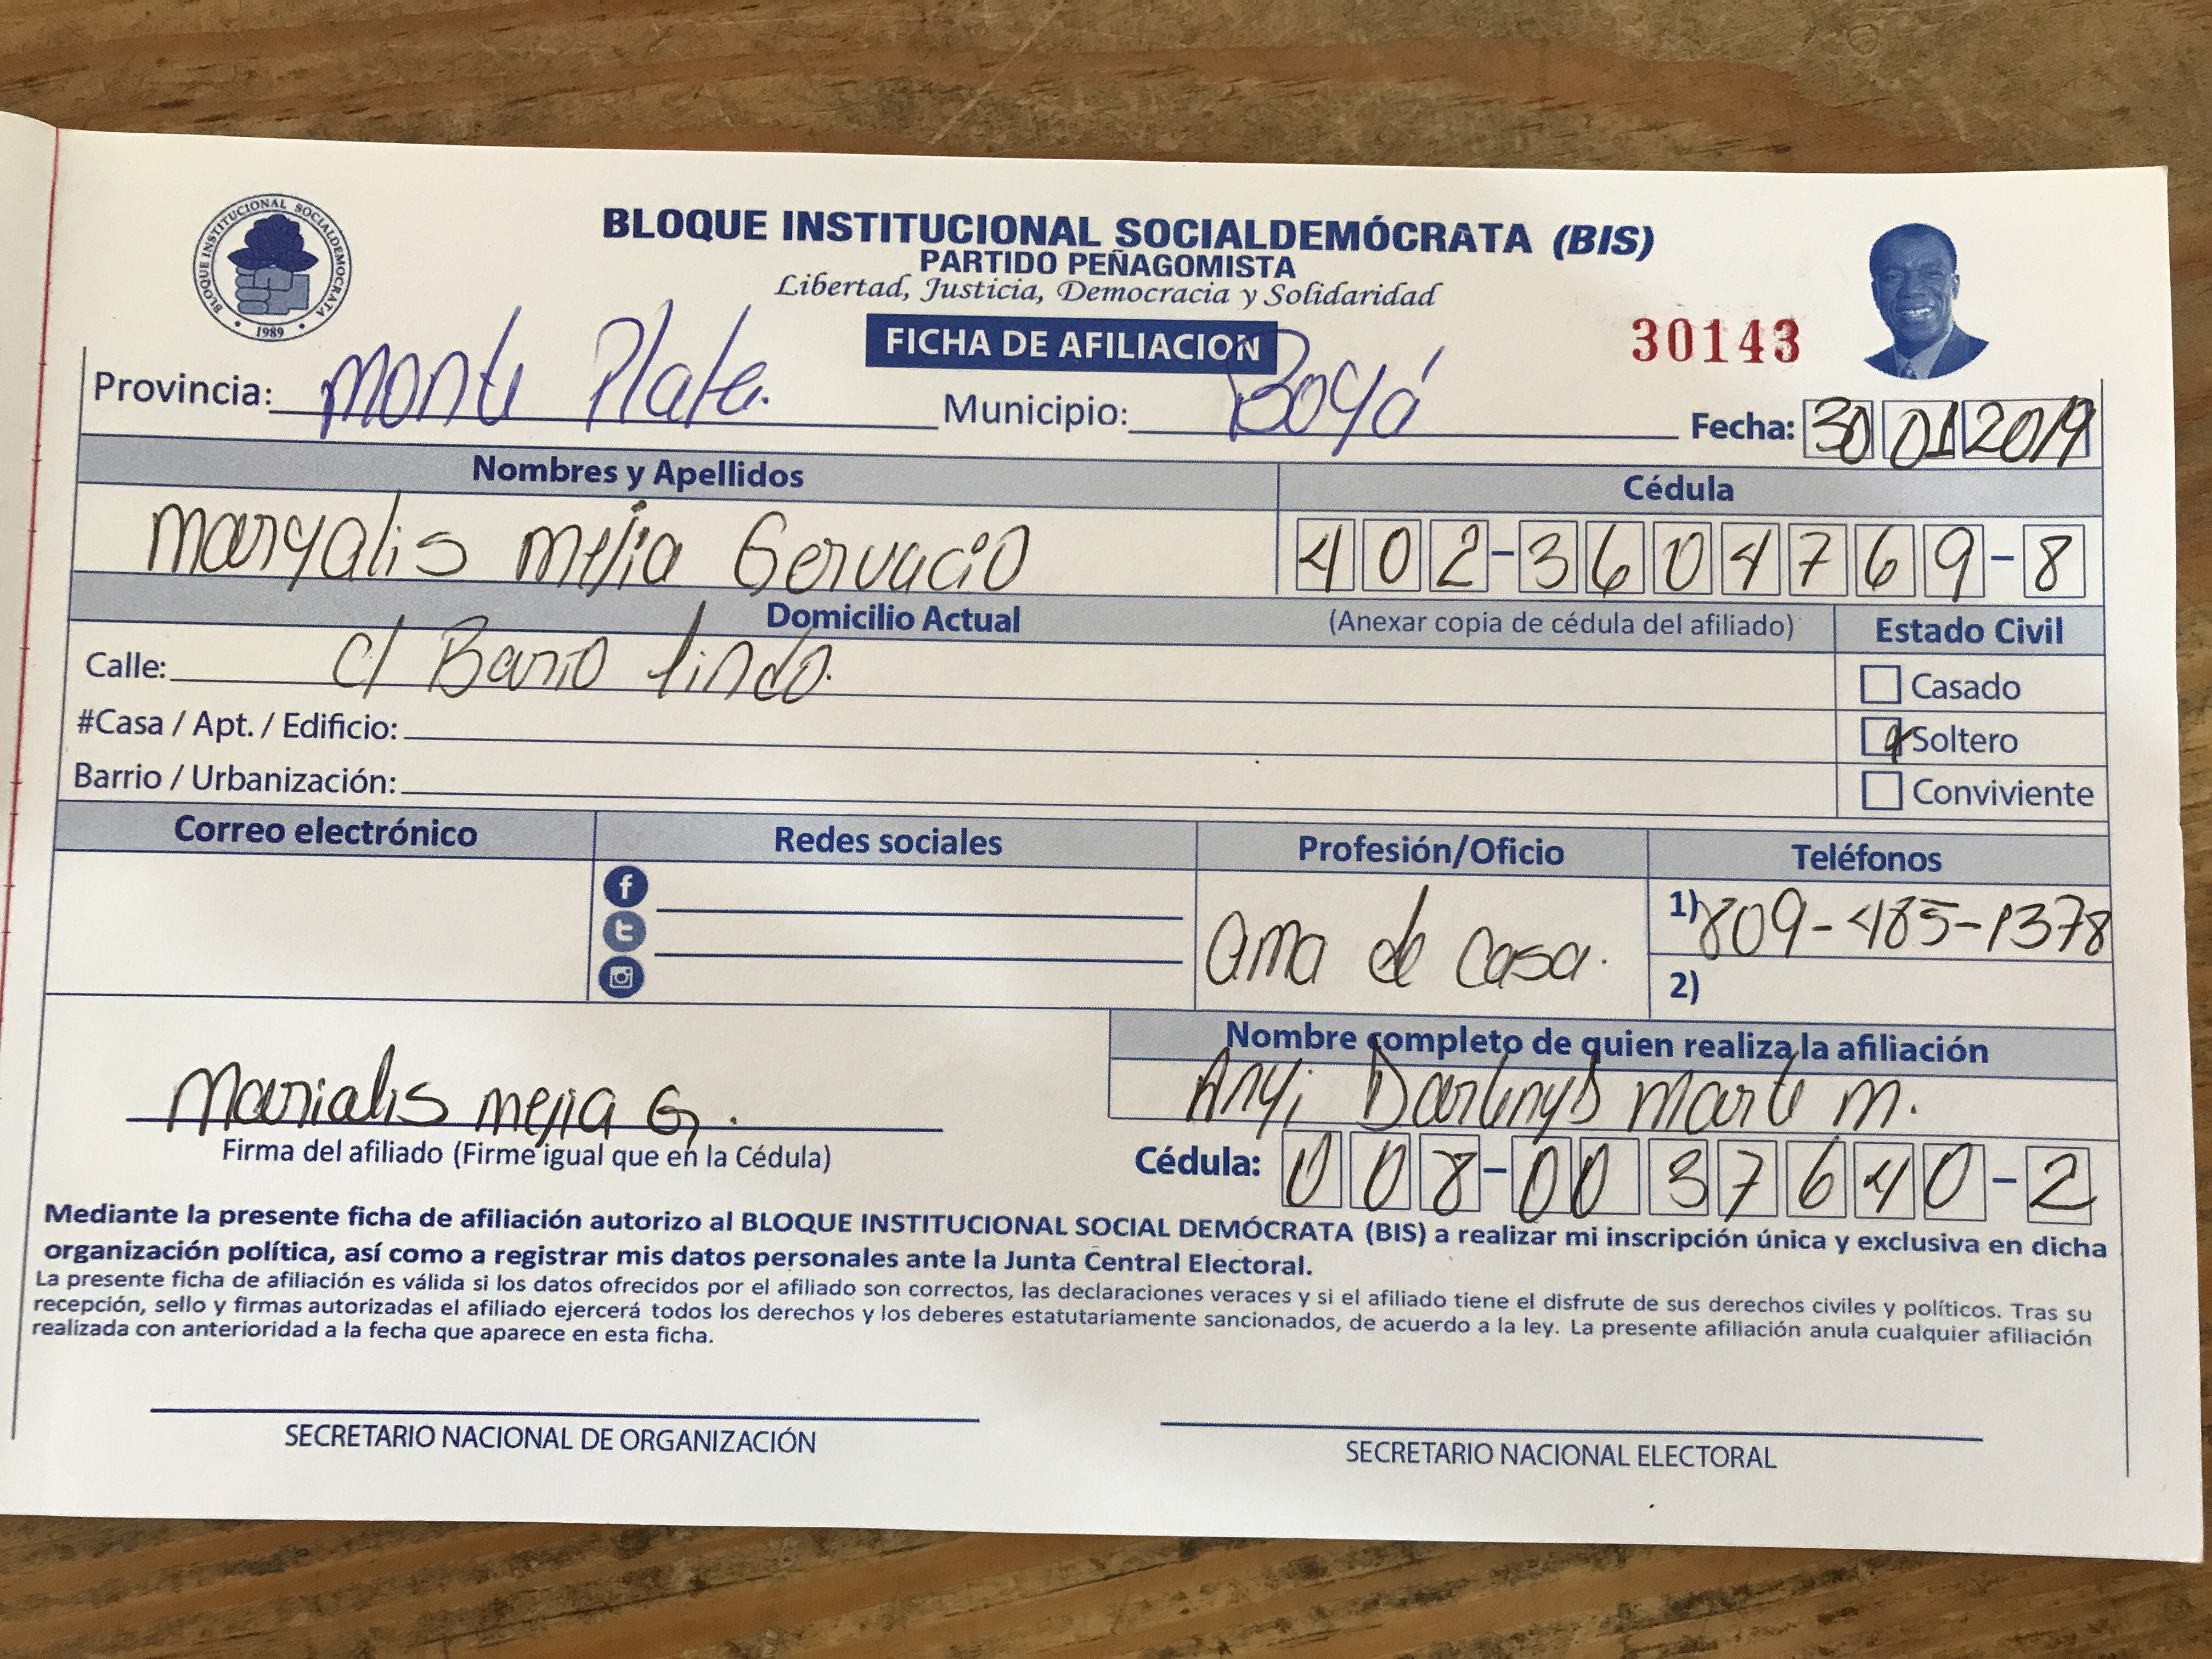 BLOQUE INSTITUCIONAL SOCIALDEMÓCRATA
1989
BLOQUE INSTITUCIONAL SOCIALDEMÓCRATA (BIS)
PARTIDO PEÑAGOMISTA
Libertad, Justicia, Democracia y Solidaridad
FICHA DE AFILIACION
30143
Provincia: Monte Plata. Municipio: Boyá Fecha: 30 01 2019
Nombres y Apellidos Cédula
Maryalis Mejia Gervacio 402-3604769-8
Domicilio Actual (Anexar copia de cédula del afiliado) Estado Civil
Calle: c/ Bario lindo. Casado
#Casa / Apt. / Edificio: Soltero
Barrio / Urbanización: Conviviente
Correo electrónico Redes sociales Profesión/Oficio Teléfonos
ama de casa. 1) 809-485-1378
2)
Nombre completo de quien realiza la afiliación
Anyi Darlenys Marte M.
Marialis mejia G.
Firma del afiliado (Firme igual que en la Cédula) Cédula: 008-0037640-2
Mediante la presente ficha de afiliación autorizo al BLOQUE INSTITUCIONAL SOCIAL DEMÓCRATA (BIS) a realizar mi inscripción única y exclusiva en dicha
organización política, así como a registrar mis datos personales ante la Junta Central Electoral.
La presente ficha de afiliación es válida si los datos ofrecidos por el afiliado son correctos, las declaraciones veraces y si el afiliado tiene el disfrute de sus derechos civiles y políticos. Tras su
recepción, sello y firmas autorizadas el afiliado ejercerá todos los derechos y los deberes estatutariamente sancionados, de acuerdo a la ley. La presente afiliación anula cualquier afiliación
realizada con anterioridad a la fecha que aparece en esta ficha.
SECRETARIO NACIONAL DE ORGANIZACIÓN SECRETARIO NACIONAL ELECTORAL